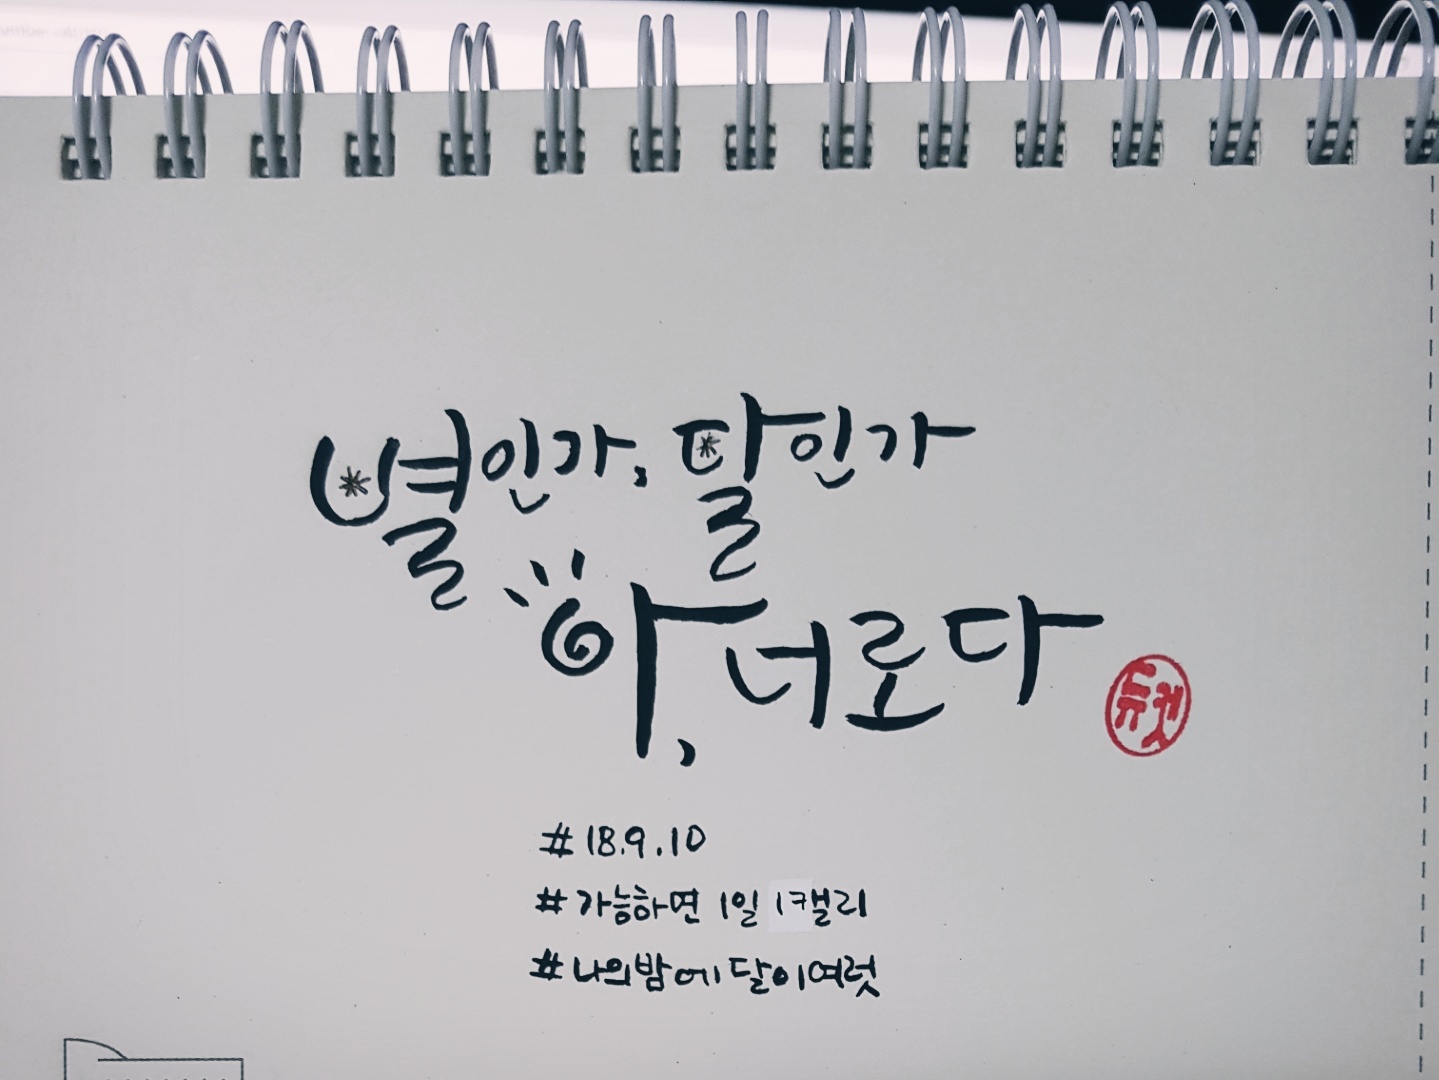 별인가, 달인가
아, 너로다
#18.9.10
#가능하면 1일 1캘리
#나의밤에달이여럿